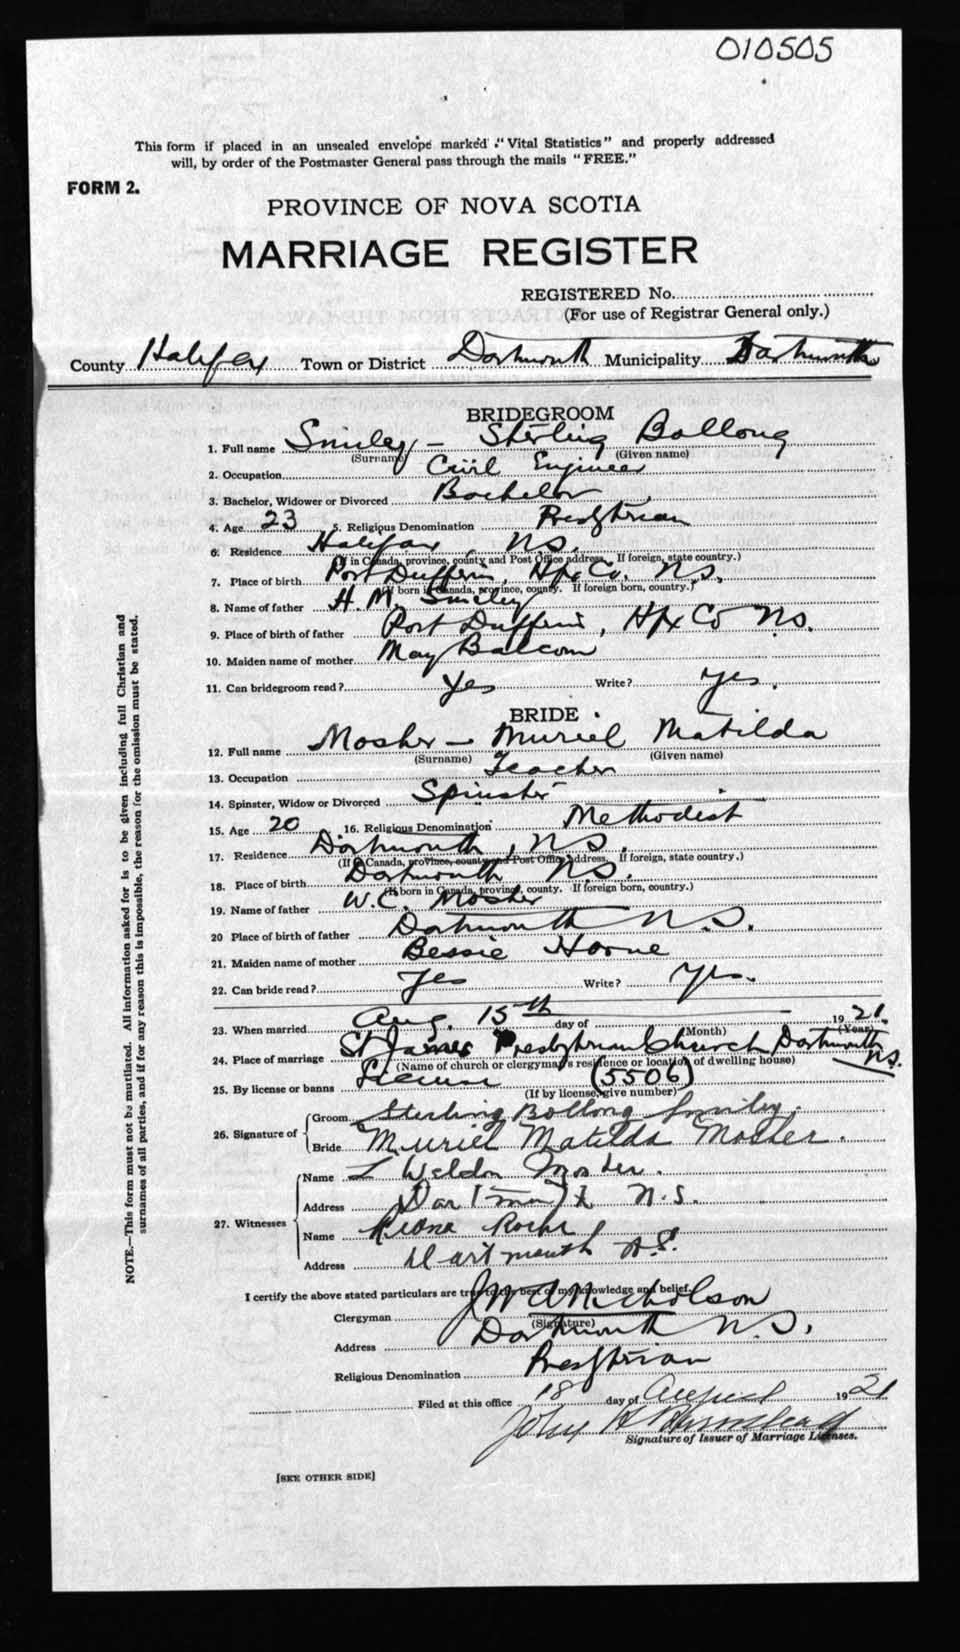 010505
This form if placed in an unsealed envelope marked "Vital Statistics" and properly addressed
will, by order of the Postmaster General pass through the mails "FREE."
FORM 2.
PROVINCE OF NOVA SCOTIA
MARRIAGE REGISTER
REGISTERED No.
(For use of Registrar General only.)
County Halifax Town or District Dartmouth Municipality Dartmouth
BRIDEGROOM
1. Full name Smiley - Sterling Bollong
(Surname) (Given name)
2. Occupation Civil Engineer
3. Bachelor, Widower or Divorced Bachelor
4. Age 23 5. Religious Denomination Presbyterian
6. Residence Halifax, N.S.
(If in Canada, province, county and Post Office address. If foreign, state country.)
7. Place of birth Port Dufferin, Hfx Co. N.S.
(If born in Canada, province, county. If foreign born, country.)
8. Name of father H. M. Smiley
9. Place of birth of father Port Dufferin, Hfx Co N.S.
10. Maiden name of mother May Balcom
11. Can bridegroom read? Yes Write? Yes.
BRIDE
12. Full name Mosher - Muriel Matilda
(Surname) (Given name)
13. Occupation Teacher
14. Spinster, Widow or Divorced Spinster
15. Age 20 16. Religious Denomination Methodist
17. Residence Dartmouth, N.S.
(If in Canada, province, county and Post Office address. If foreign, state country.)
18. Place of birth Dartmouth N.S.
(If born in Canada, province, county. If foreign born, country.)
19. Name of father W. C. Mosher
20 Place of birth of father Dartmouth N.S.
21. Maiden name of mother Bessie Horne
22. Can bride read? Yes Write? Yes.
23. When married Aug. 15th day of 1921.
(Month) (Year)
24. Place of marriage St James Presbyterian Church Dartmouth N.S.
(Name of church or clergyman's residence or location of dwelling house)
25. By license or banns License (5506)
(If by license, give number)
26. Signature of Groom Sterling Bollong Smiley.
Bride Muriel Matilda Mosher.
27. Witnesses Name L Weldon Mosher.
Address Dartmouth N.S.
Name Roche
Address Dartmouth N.S.
I certify the above stated particulars are true to the best of my knowledge and belief.
Clergyman Nicholson
(Signature)
Address Dartmouth N.S.
Religious Denomination Presbyterian
Filed at this office 18 day of August 1921
John
Signature of Issuer of Marriage Licenses.
[SEE OTHER SIDE]
NOTE.—This form must not be mutilated. All information asked for is to be given including full Christian and
surnames of all parties, and if for any reason this is impossible, the reason for the omission must be stated.